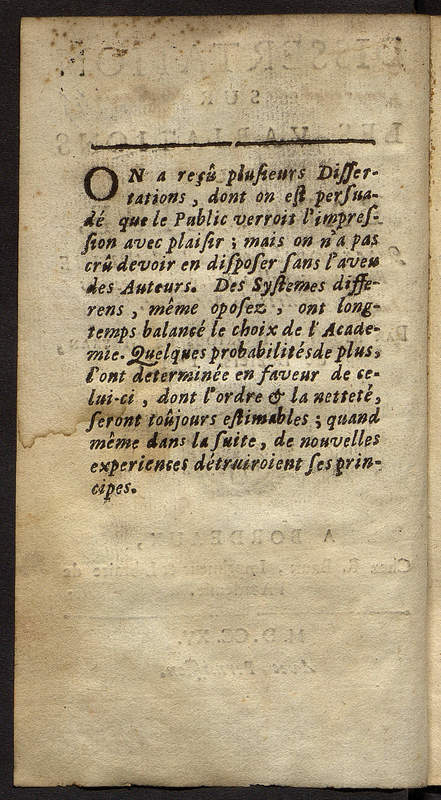 ON a reçû plusieurs Disser-
tations, dont on est persua-
dé que le Public verroit l'impres-
sion avec plaisir ; mais on n'a pas
crû devoir en disposer sans l'aveu
des Auteurs. Des Systemes diffe-
rens, même oposez, ont long-
temps balancé le choix de l'Acade-
mie. Quelques probabilités de plus,
l'ont determinée en faveur de ce-
lui-ci, dont l'ordre & la netteté,
seront toûjours estimables ; quand
même dans la suite, de nouvelles
experiences détruiroient ses prin-
cipes.